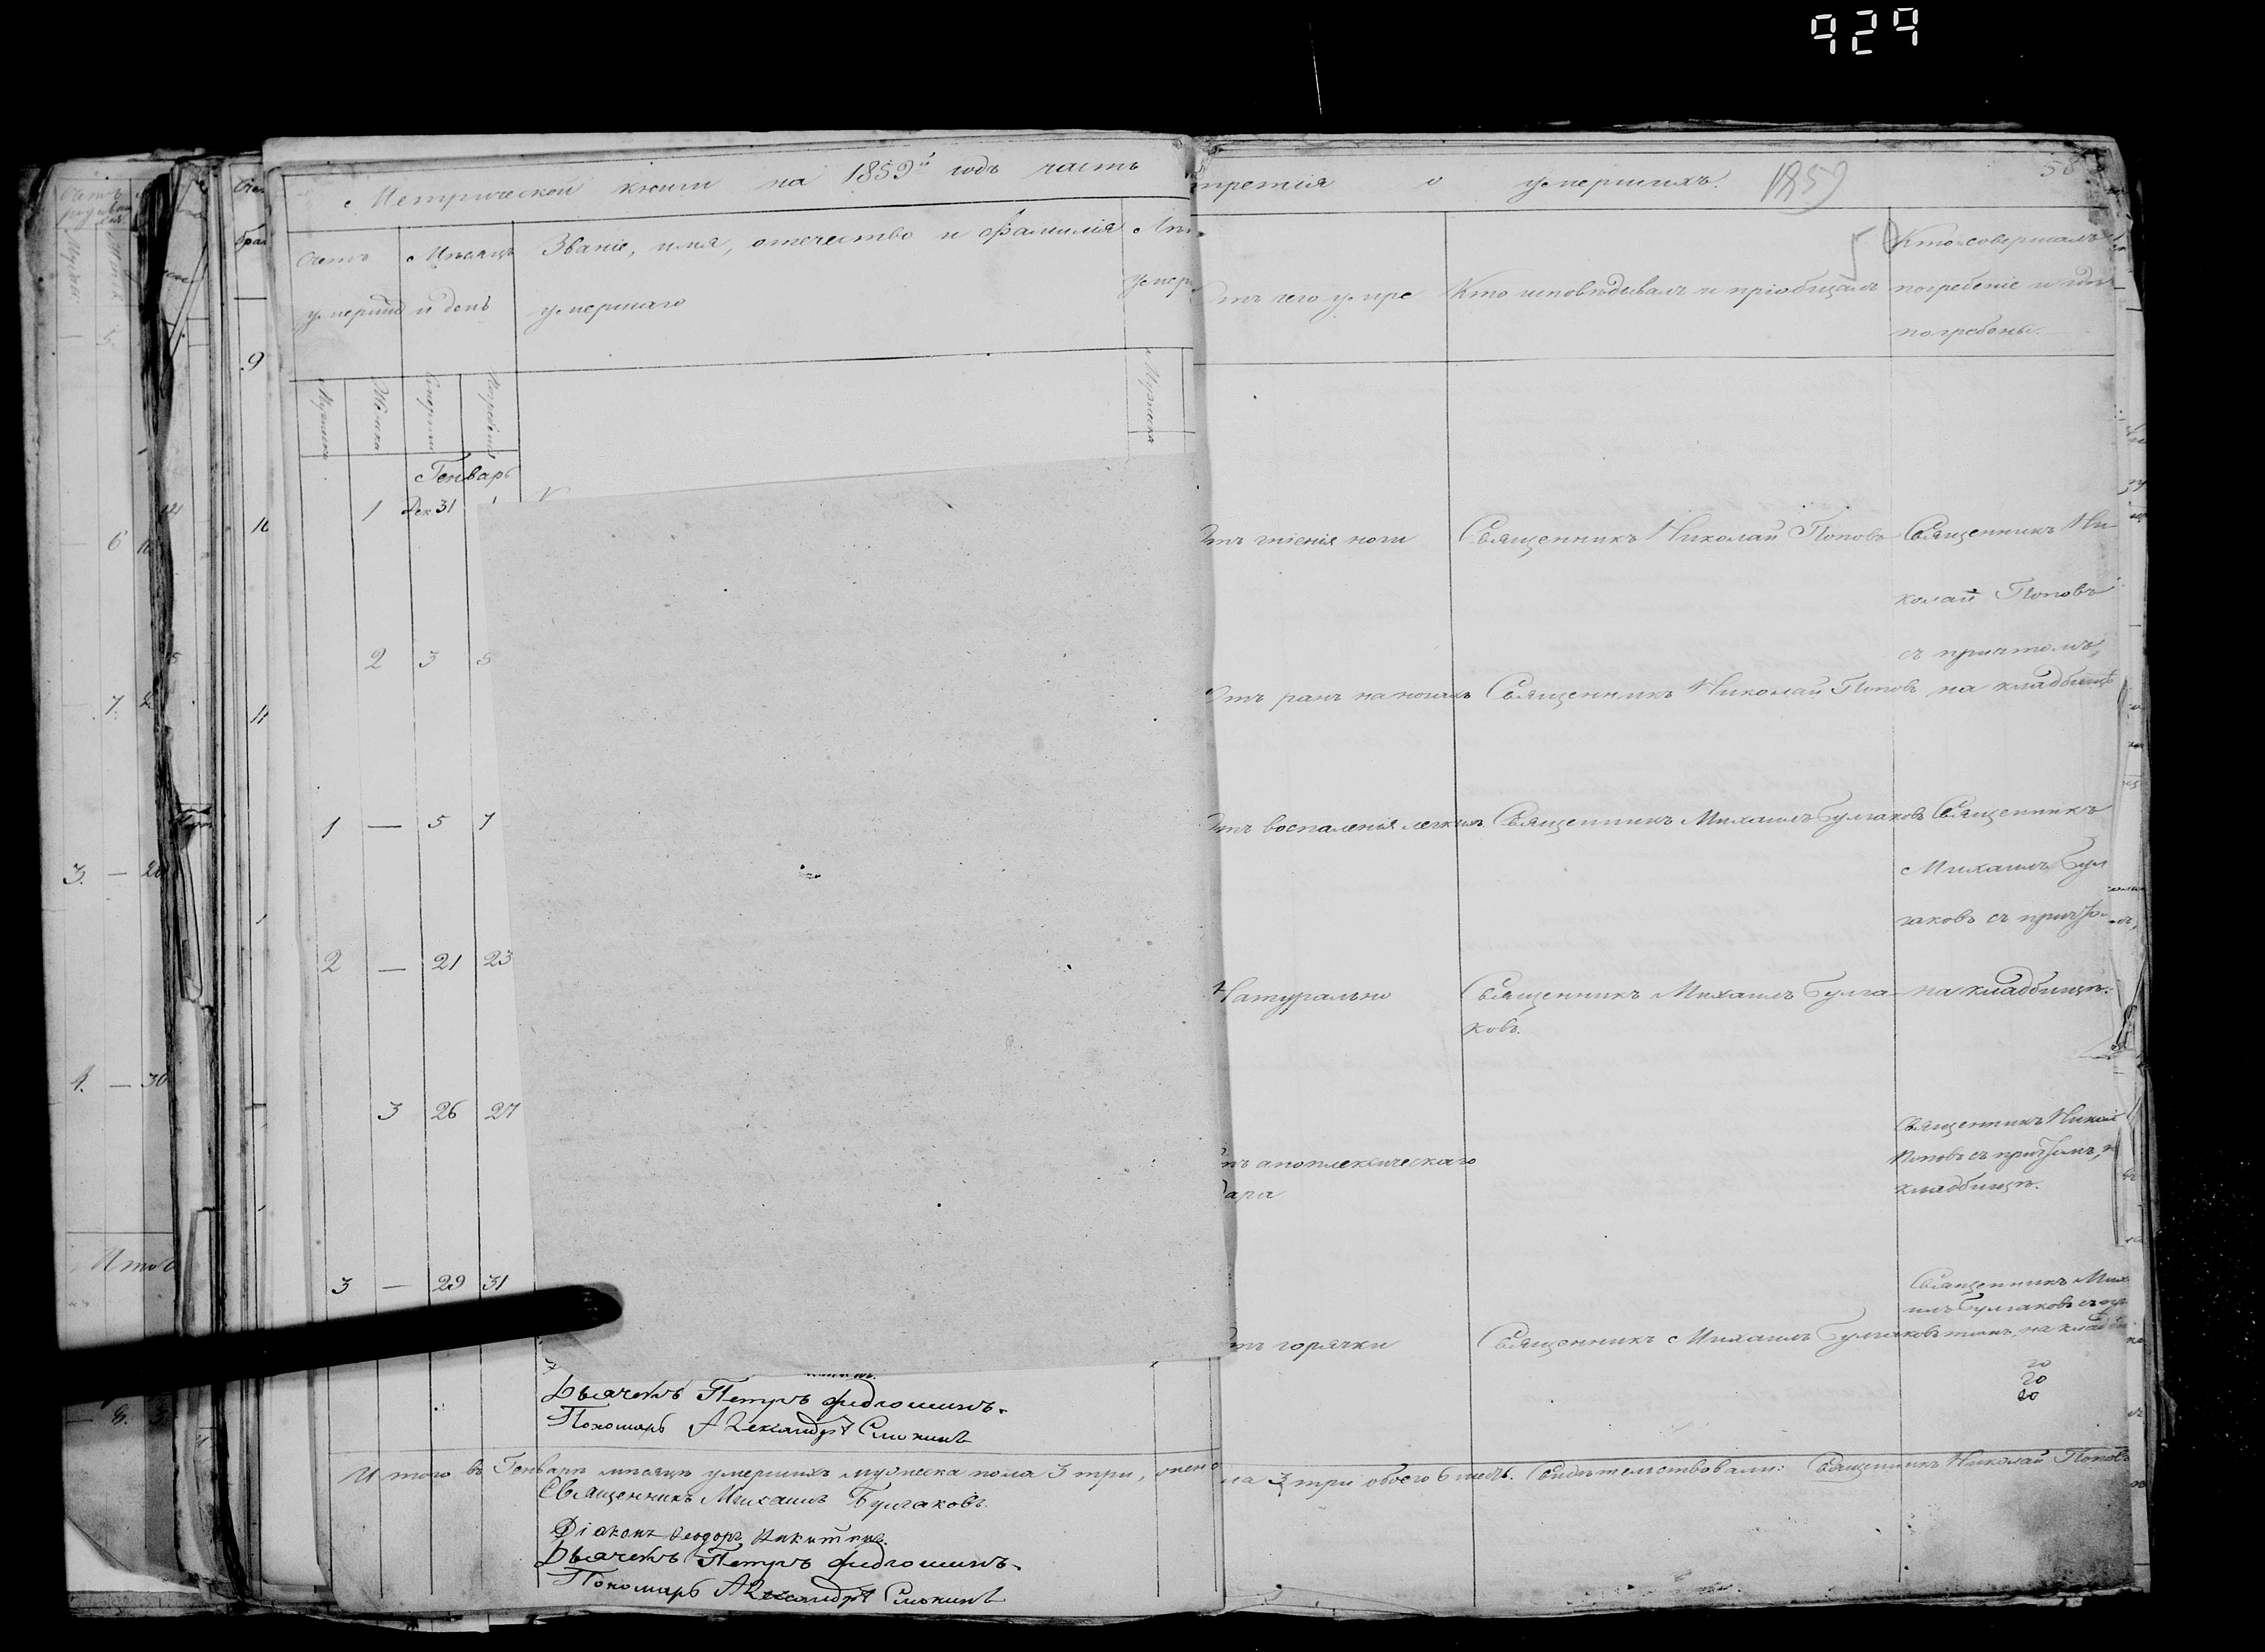 929
Метрической книги на 1859й годъ часть третія о умершихъ. 1859
Счетъ умерших
Мѣсяцъ и день
Званіе, имя, отечество и фамилія умершаго
Отъ чего умре
Кто исповѣдывалъ и пріобщалъ
Кто совершалъ погребеніе и гдѣ погребены.
Генварь
1 Дек 31 1
Отъ гніенія ноги Священникъ Николай Поповъ Священникъ Ни-
колай Поповъ
съ причтомъ,
2 3 5
Отъ ранъ на ногахъ Священникъ Николай Поповъ на кладбищѣ
1 — 5 7
Отъ воспаленія легкихъ Священникъ Михаилъ Булгаковъ Священникъ
Михаилъ Бул
гаковъ съ причто-мъ,
2 — 21 23
Натурально Священникъ Михаилъ Булга- на кладбищѣ.
ковъ.
3 26 27
Священникъ Никола
апоплексическаго Поповъ съ причтомъ, н
дара кладбищѣ.
3 — 29 31
Священникъ Миха
илъ Булгаковъ съ пр
отъ горячки Священникъ Михаилъ Булгаковъ томъ, на кладби
Дьячекъ Петръ
Пономарь Александръ
Итого въ Генварѣ мѣсяцѣ умершихъ мужеска пола 3 три, женс ла 3 три обоего 6 шесть. Свидѣтельствовали: Священникъ Николай Поповъ
Священникъ Михаилъ Булгаковъ.
Діаконъ Ѳеодоръ Никитинъ.
Дьячекъ Петръ
Пономарь Александръ